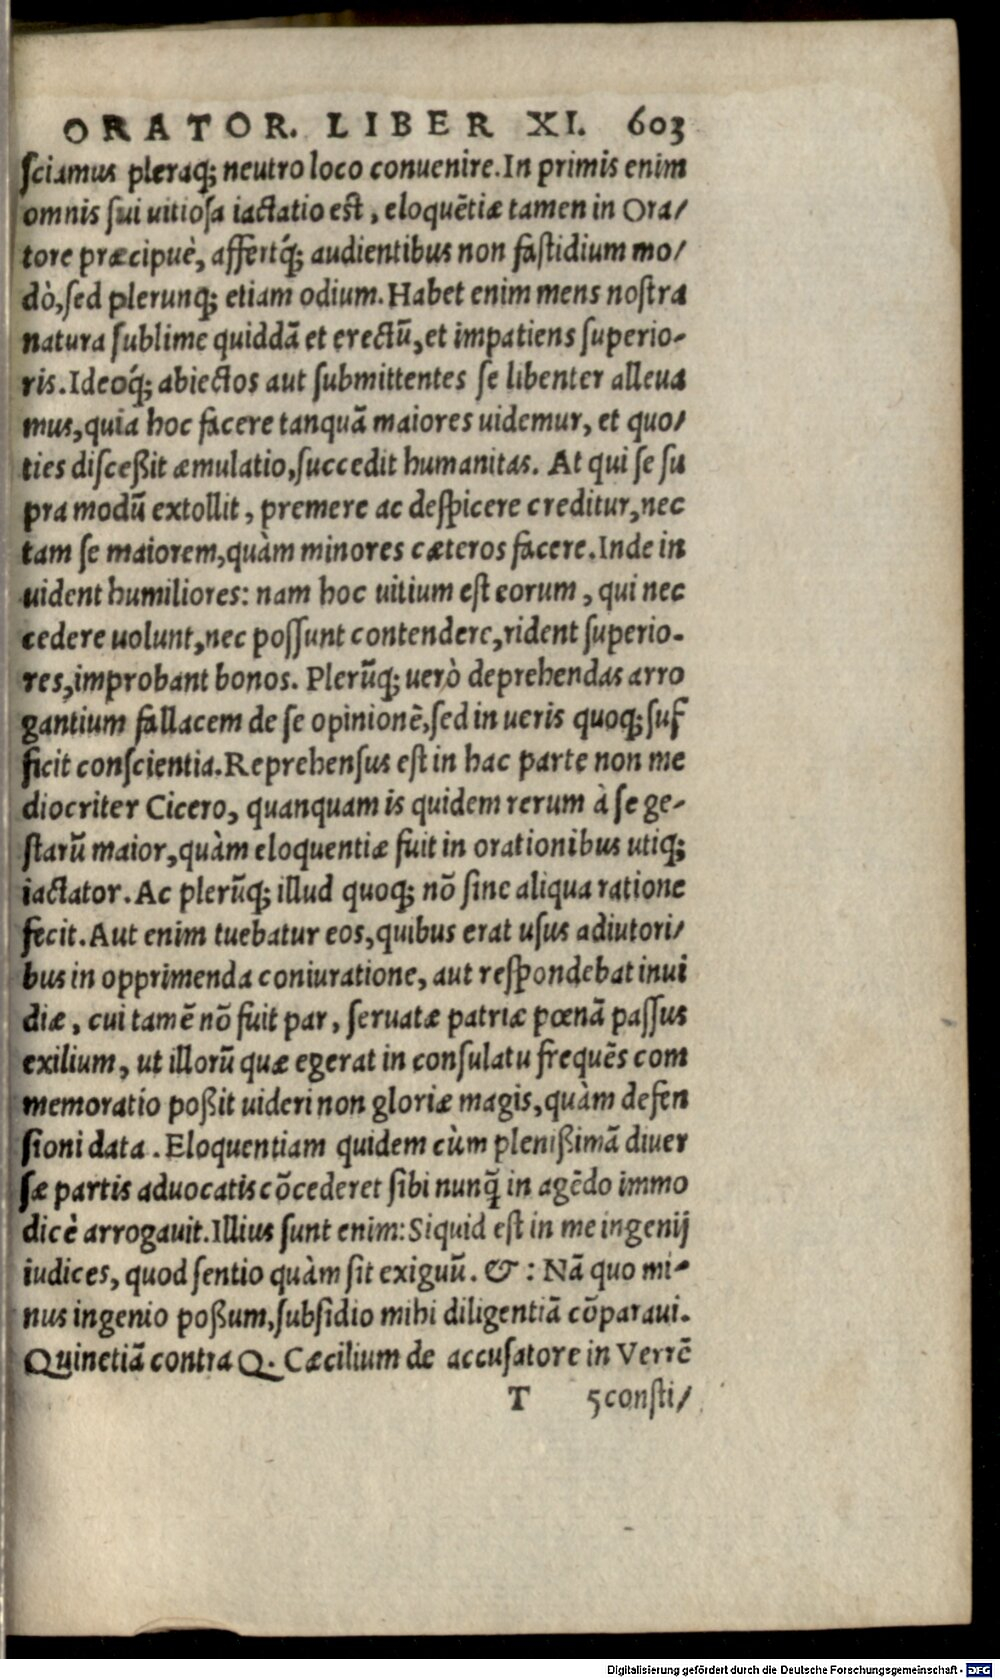 ORATOR. LIBER XI. 603
sciamus pleraq; neutro loco convenire. In primis enim
omnis sui uitiosa iactatio est, eloquẽtiæ tamen in Ora/
tore præcipuè, affertq́; audientibus non fastidium mo/
dò, sed plerunq; etiam odium. Habet enim mens nostra
natura sublime quiddã et erectũ, et impatiens superio-
ris. Ideoq́; abiectos aut submittentes se libenter alleua
mus, quia hoc facere tanquã maiores uidemur, et quo/
ties disceßit æmulatio, succedit humanitas. At qui se su
pra modũ extollit, premere ac despicere creditur, nec
tam se maiorem, quàm minores cæteros facere. Inde in
uident humiliores: nam hoc uitium est eorum, qui nec
cedere uolunt, nec possunt contendere, rident superio-
res, improbant bonos. Plerũq; uerò deprehendas arro
gantium fallacem de se opinionẽ, sed in ueris quoq; suf
ficit conscientia. Reprehensus est in hac parte non me
diocriter Cicero, quanquam is quidem rerum à se ge-
starũ maior, quàm eloquentiæ fuit in orationibus utiq;
iactator. Ac plerũq; illud quoq; nõ sine aliqua ratione
fecit. Aut enim tuebatur eos, quibus erat usus adiutori/
bus in opprimenda coniuratione, aut respondebat inui
diæ, cui tamẽ nõ fuit par, seruatæ patriæ pœnã passus
exilium, ut illorũ quæ egerat in consulatu frequẽs com
memoratio poßit uideri non gloriæ magis, quàm defen
sioni data. Eloquentiam quidem cùm plenißimã diuer
sæ partis aduocatis cõcederet sibi nunq̃ in agẽdo immo
dicè arrogauit. Illius sunt enim: Siquid est in me ingenij
iudices, quod sentio quàm sit exiguũ. & : Nã quo mi-
nus ingenio poßum, subsidio mihi diligentiã cõparaui.
Quinetiã contra Q. Cæcilium de accusatore in Verrẽ
T 5 consti/
Digitalisierung gefördert durch die Deutsche Forschungsgemeinschaft - DFG